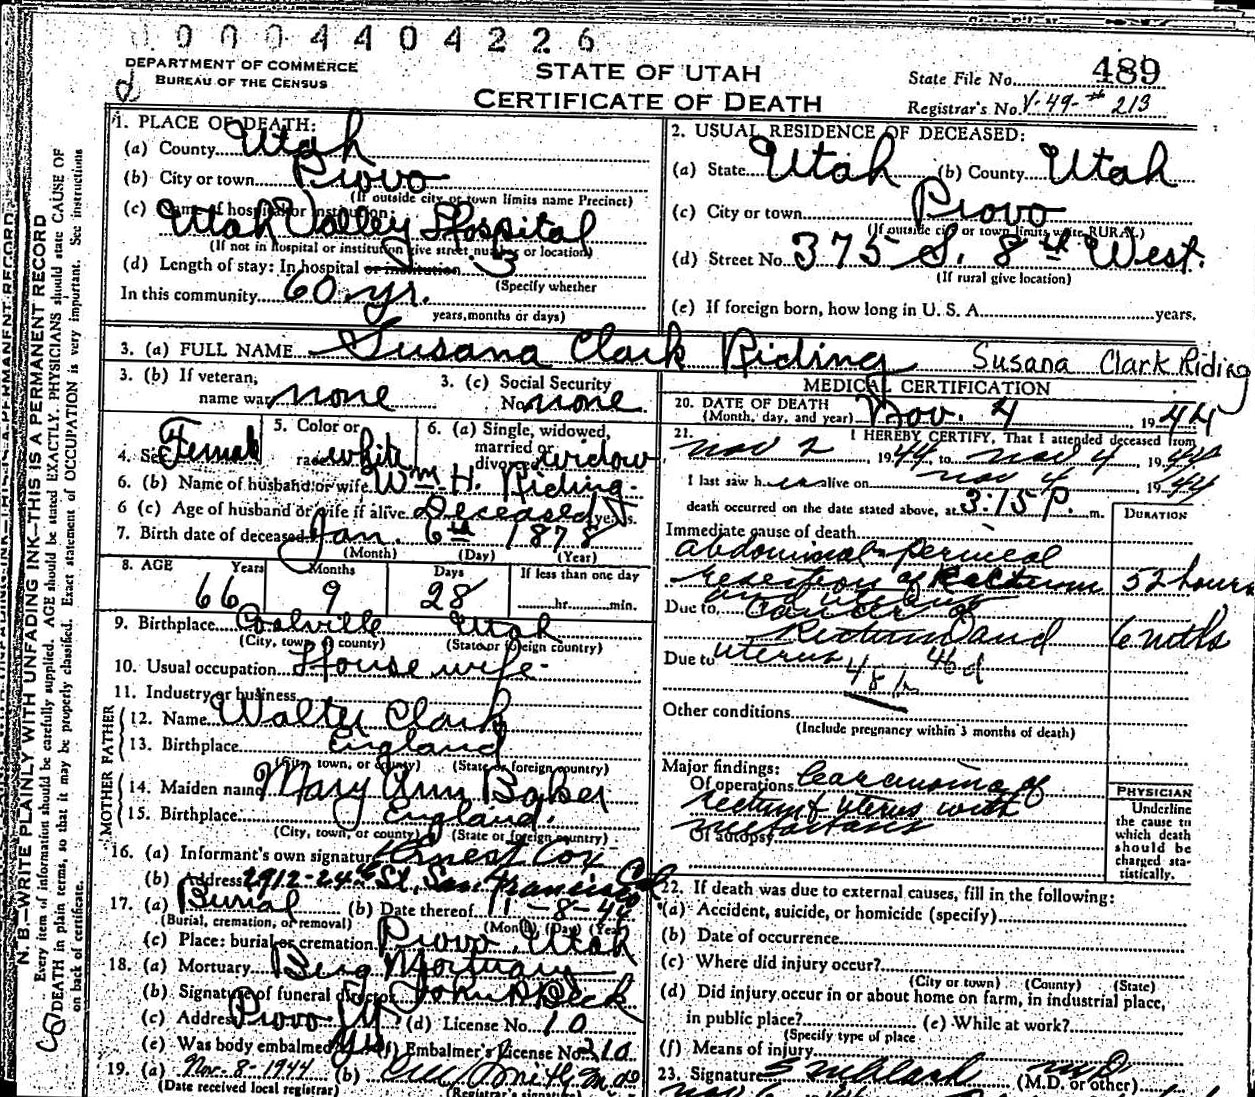 0 0 0 4 4 0 4 2 2 6
DEPARTMENT OF COMMERCE
BUREAU OF THE CENSUS
STATE OF UTAH
CERTIFICATE OF DEATH
State File No. 489
Registrar's No. V-49-# 213
1. PLACE OF DEATH:
(a) County Utah
(b) City or town Provo
(If outside city or town limits name Precinct)
(c) Name of hospital or institution: Utah Valley Hospital
(If not in hospital or institution give street number or location)
(d) Length of stay: In hospital or institution 3
(Specify whether
In this community 60 yr.
years, months or days)
2. USUAL RESIDENCE OF DECEASED:
(a) State Utah (b) County Utah
(c) City or town Provo
(If outside city or town limits write RURAL)
(d) Street No. 375 S. 8th West.
(If rural give location)
(e) If foreign born, how long in U. S. A. years.
3. (a) FULL NAME Susana Clark Riding Susana Clark Riding
3. (b) If veteran, name war none 3. (c) Social Security No. none
4. Sex Female 5. Color or race white 6. (a) Single, widowed, married or divorced widow
6. (b) Name of husband or wife Wm H. Riding.
6 (c) Age of husband or wife if alive Deceased years.
7. Birth date of deceased Jan. 6th 1878
(Month) (Day) (Year)
8. AGE Years Months Days If less than one day
66 9 28 hr. min.
9. Birthplace Coalville Utah
(City, town, or county) (State or foreign country)
10. Usual occupation House wife.
11. Industry or business
FATHER
12. Name Walter Clark
13. Birthplace England
(City, town, or county) (State or foreign country)
MOTHER
14. Maiden name Mary Ann Baker
15. Birthplace England.
(City, town, or county) (State or foreign country)
16. (a) Informant's own signature Ernest Cox
(b) Address 2912-24th St, San Francisco Cal
17. (a) Burial (b) Date thereof 11-8-44
(Burial, cremation, or removal) (Month) (Day) (Year)
(c) Place: burial or cremation Provo, Utah
18. (a) Mortuary Berg Mortuary
(b) Signature of funeral director
(c) Address Provo Ut (d) License No. 10
(e) Was body embalmed Yes (f) Embalmer's License No. 210
19. (a) Nov-8-1944 (b)
(Date received local registrar) (Registrar's signature)
MEDICAL CERTIFICATION
20. DATE OF DEATH
(Month, day, and year) Nov. 4, 1944
21. I HEREBY CERTIFY, That I attended deceased from
Nov 2, 1944, to Nov 4, 1944
I last saw her alive on Nov 4, 1944
death occurred on the date stated above, at 3:15 P. m.
DURATION
Immediate cause of death
abdominal-perineal
resection of Rectum 52 hours
and uterus
Due to Cancer of
Rectum and 6 mths
Due to uterus 46d
Other conditions
(Include pregnancy within 3 months of death)
Major findings:
Of operations Carcinoma of
rectum & uterus with
metastasis
Of autopsy
PHYSICIAN
Underline the cause to which death should be charged statistically.
22. If death was due to external causes, fill in the following:
(a) Accident, suicide, or homicide (specify)
(b) Date of occurrence
(c) Where did injury occur?
(City or town) (County) (State)
(d) Did injury occur in or about home on farm, in industrial place,
in public place? (e) While at work?
(Specify type of place
(f) Means of injury
23. Signature M.D. (M.D. or other)
N. B.—WRITE PLAINLY WITH UNFADING INK—THIS IS A PERMANENT RECORD
Every item of information should be carefully supplied. AGE should be stated EXACTLY. PHYSICIANS should state CAUSE OF
DEATH in plain terms, so that it may be properly classified. Exact statement of OCCUPATION is very important. See instructions
on back of certificate.